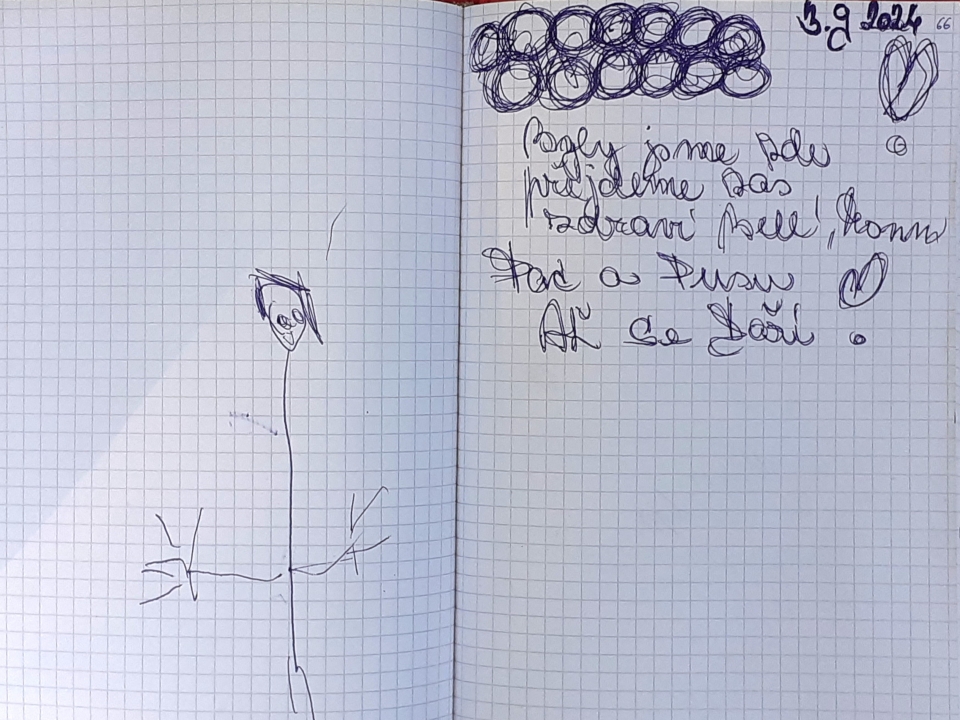 3.9 2024
66
Byly jsme zde
přijdeme zas
zdraví
Pac a Pusu
Ať se Daří